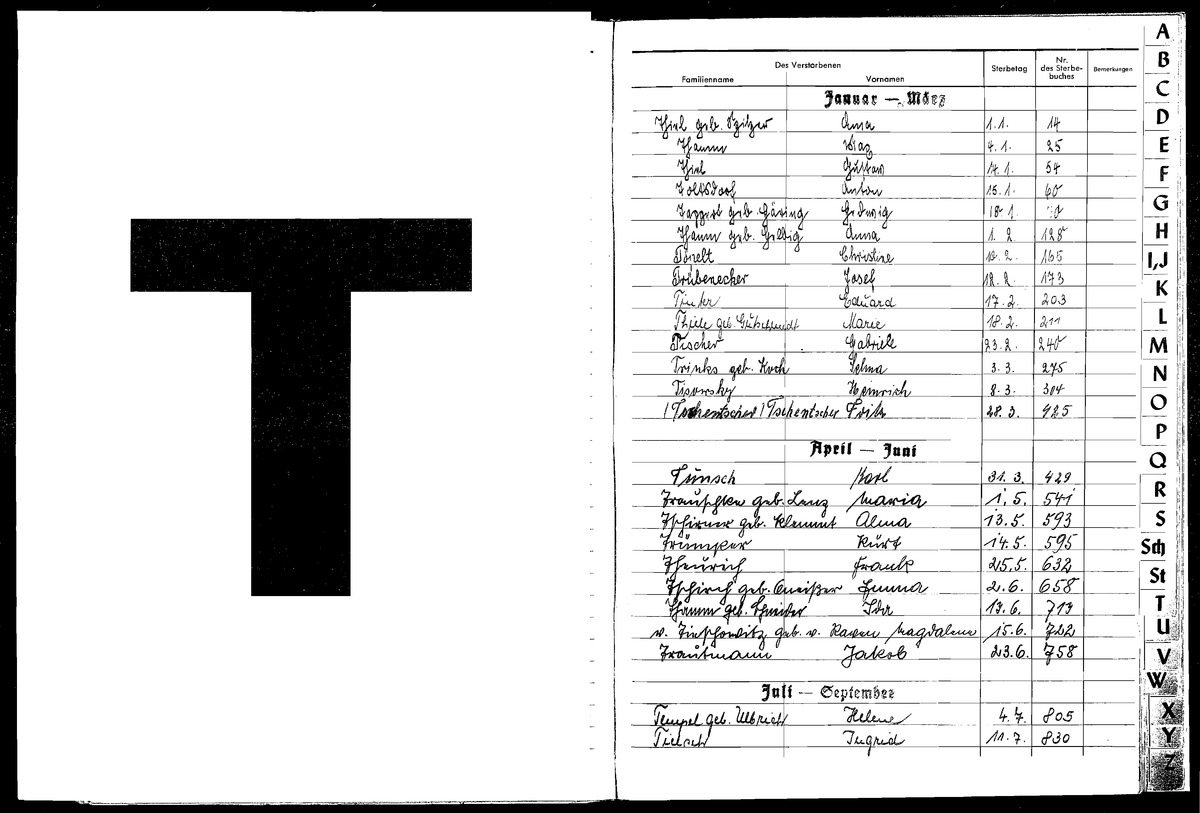 T
Des Verstorbenen
Familienname Vornamen Sterbetag Nr. des Sterbe-buches Bemerkungen
Januar — März
Thiel geb. Spitzer Anna 1.1. 14
Thamm Max 4.1. 25
Thiel Gustav 14.1. 54
Toltsdorf Anton 15.1. 60
Tappert geb. Göring Hedwig 18.1.
Thamm geb. Helbig Anna 1.2. 128
Christine 165
Trübenecker Josef 12.2. 173
Eduard 17.2. 203
Thiele geb. Gutschmidt Marie 18.2. 211
Tischer Gabriele 23.2. 240
Trinks geb. Koch Selma 3.3. 275
Tisowsky Heinrich 8.3. 304
/Tschentscher/ Tschentscher Fritz 28.3. 425
April — Juni
Tünsch Karl 31.3. 429
Trauschke geb. Lenz Maria 1.5. 541
Tschirner geb. Klemmt Alma 13.5. 593
Trümper Kurt 14.5. 595
Theurich Frank 25.5. 632
Tschirch geb. Emma 2.6. 658
Thamm geb. Schneider Ida 13.6. 713
v. Tieschowitz geb. v. Raven Magdalene 15.6. 722
Trautmann Jakob 23.6. 758
Juli — September
Tempel geb. Ulbrich Helene 4.7. 805
Tietsch Ingrid 11.7. 830
A
B
C
D
E
F
G
H
I,J
K
L
M
N
O
P
Q
R
S
Sch
St
T
U
V
W
X
Y
Z